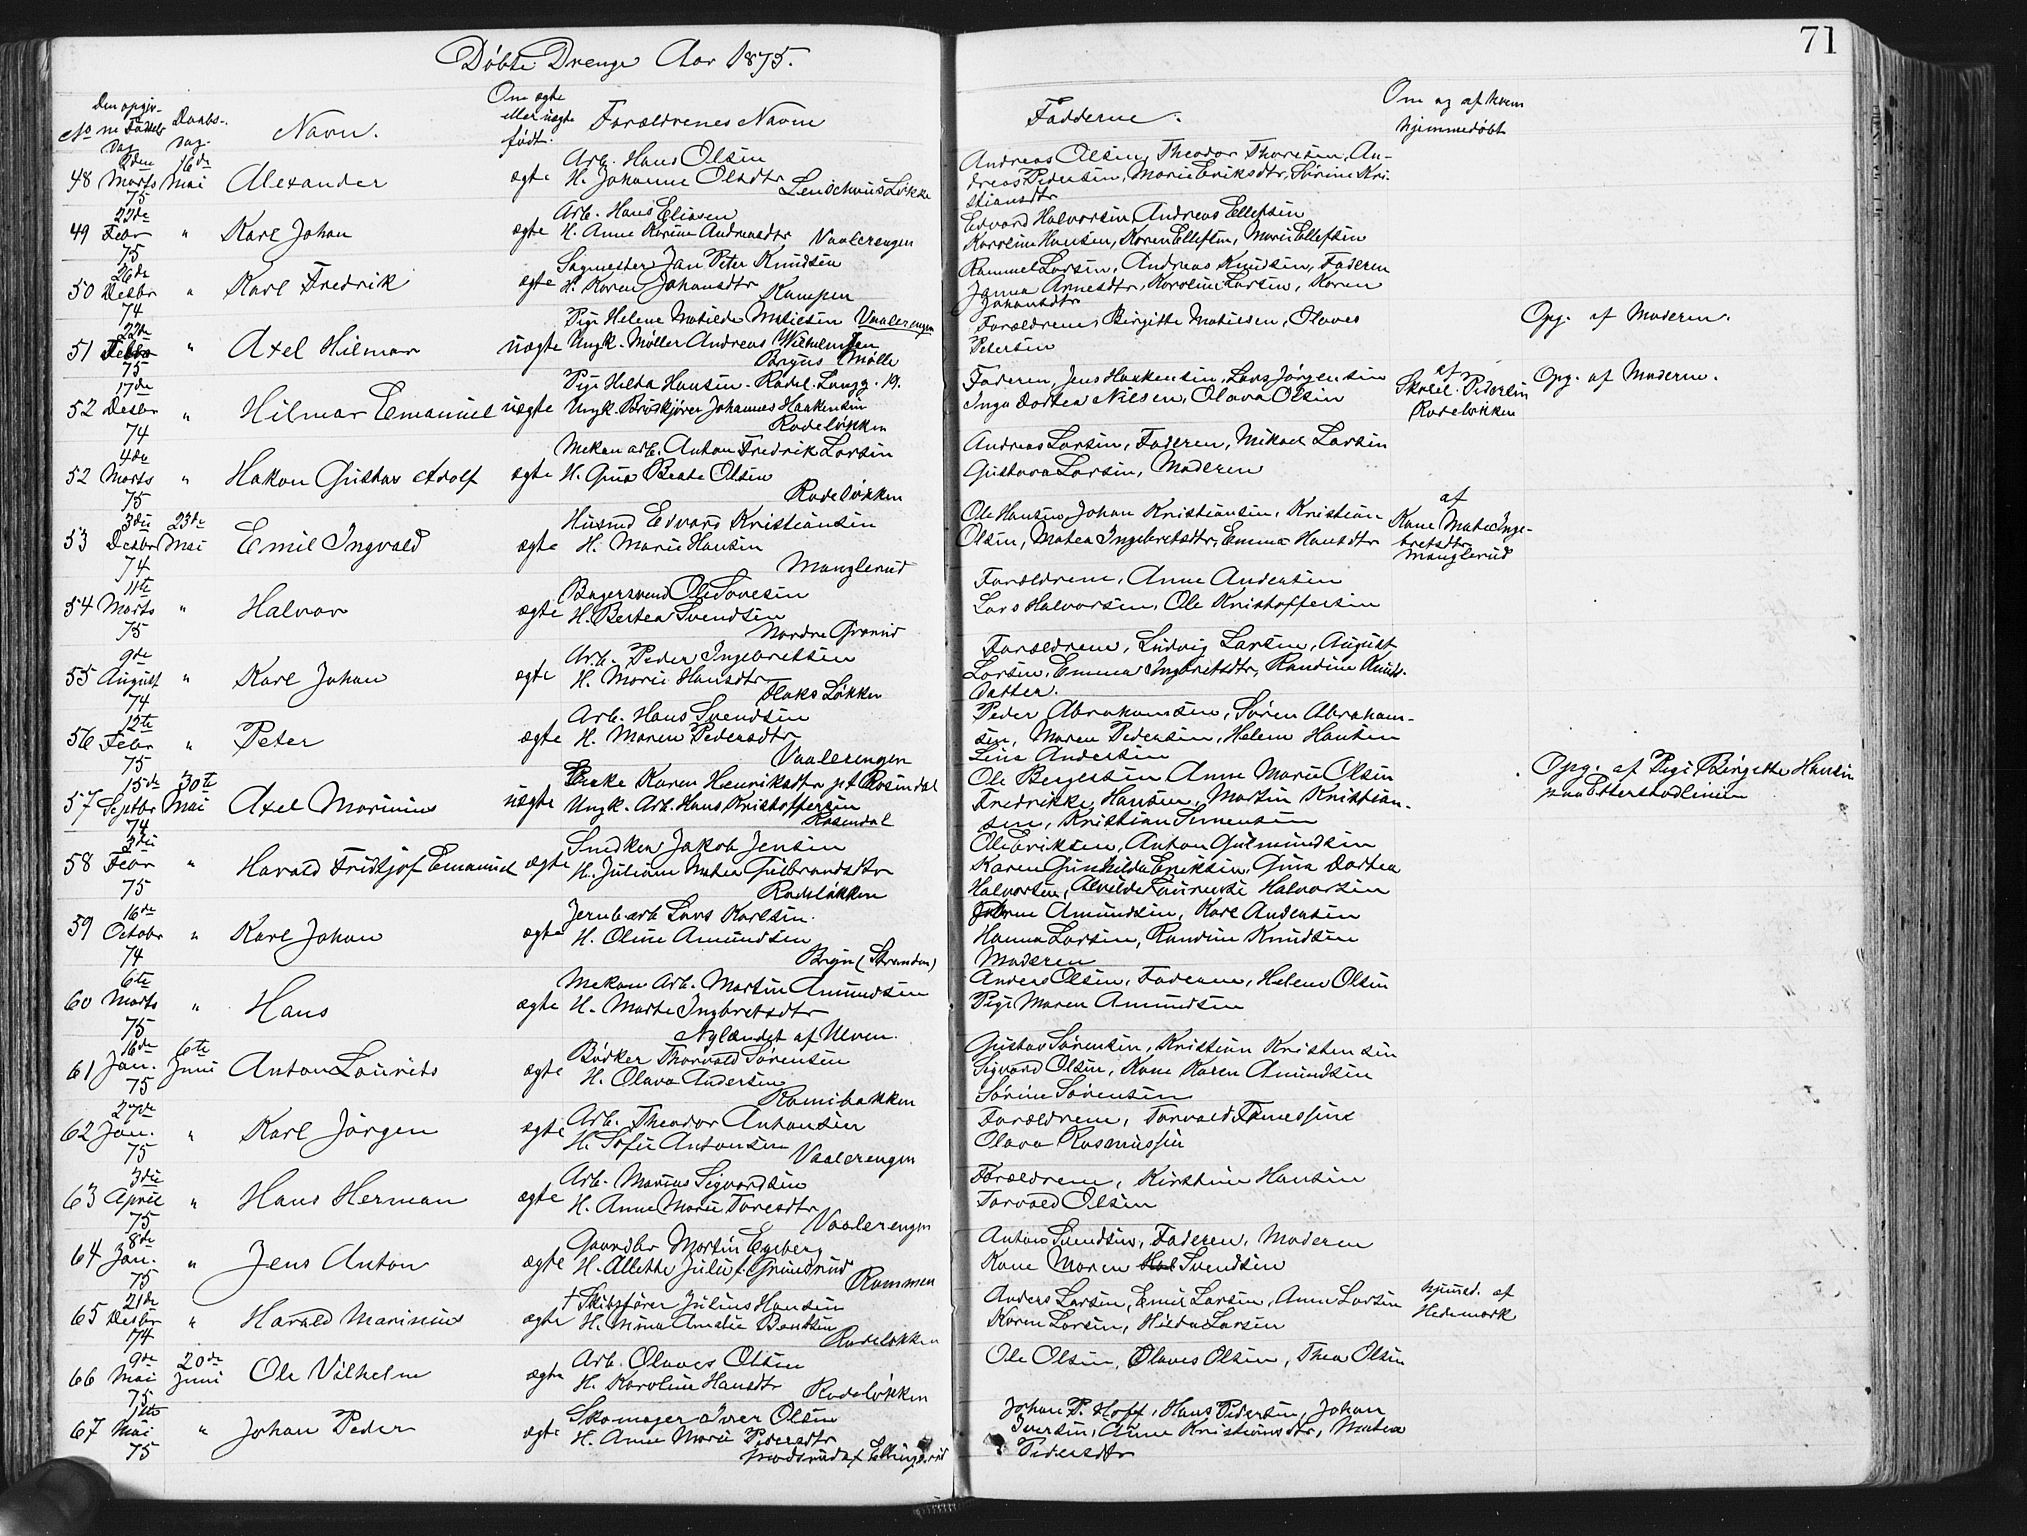 71
Døbte Drenge Aar 1875.
No
den opgiv-
ne Fødsels
dag
Daabs-
dag.
Navn.
Om ægte
eller uægte
født.
Forældrenes Navne
Fadderne.
Om og af hvem
hjemmedøbt
48 Marts 75 16de Mai Alexander ægte Arb. Hans Olsen
H. Johanne Olsdtr
Andreas Olsen, Theodor Thoresen, An-
dreas Pedersen, Marie Eriksdtr, Sørine Kri-
stiansdtr
49 22de Febr 75 " Karl Johan ægte Arb. Hans Eliasen
H. Anne Karine Andreasdtr Vaalerengen
Edvard Halvorsen, Andreas Ellefsen
Karoline Hansen, Karen Ellefsen, Marie Ellefsen
50 26de Desbr 74 " Karl Fredrik ægte Sagmester Jan Peter Knudsen
H. Karen Johansdtr
Kampen
Larsen, Andreas Knudsen, Faderen
Janna Arnesdtr, Karoline Larsen, Karen
Johansdtr
51 22de Febr 75 " Axel Hilmar uægte Pige Helene Matilde Matiesen Vaalerengen
Ungk. Møller Andreas Wilhelmsen
Bryns Mølle
Forældrene, Birgitte Matiesen, Olaves
Petersen
Opg. af Moderen.
52 17de Desbr 74 " Hilmar Emanuel uægte Pige Hilda Hansen. Rodel. Langg. 19.
Ungk. Johannes Haakensen
Rodeløkken
Faderen, Jens Haakensen, Lars Jørgensen
Inga Dortea Nilsen, Olava Olsen
af
Skolel. Pedersen
Rodeløkken
Opg. af Moderne.
52 4de Marts 75 " Hakon Gustav Adolf ægte Mekan. arb. Anton Fredrik Larsen
H. Gina Beate Olsen
Rodeløkken
Andreas Larsen, Faderen, Mikael Larsen
Gustava Larsen, Moderen
53 3die Desbr 74 23de Mai Emil Ingvald ægte Husmd Edvard Kristiansen
H. Marie Hansen
Manglerud
Ole Hansen, Johan Kristiansen, Kristian
Olsen, Matea Ingebretsdtr, Emma Hansdtr
af
Kone Matea Inge-
bretsdtr
Manglerud
54 11te Marts 75 " Halvor ægte Bagersvend Ole
H. Bertea Svendsen
Nordre
Forældrene, Anne Andersen
Lars Halvorsen, Ole Kristoffersen
55 9de August 74 " Karl Johan ægte Arb. Peder Ingebretsen
H. Marie Hansdtr
Flaks Løkken
Forældrene, Ludvig Larsen, August
Larsen, Emma Ingbretsdtr, Randine Knuds-
datter.
56 12te Febr 75 " Peter ægte Arb. Hans Svendsen
H. Maren Pedersdtr
Vaalerengen
Peder Abrahamsen, Søren Abraham-
sen, Maren Pedersen, Helene Hansen
Lina Andersen
57 15de Septbr 74 30te Mai Axel Marinius uægte Enke Karen Henriksdtr Rosendal
Ungk. Arb. Hans Kristoffersen
Rosendal
Ole Bergersen, Anne Marie Olsen
Fredrikke Hansen, Martin Kristian-
sen, Kristian Simensen
Opg. af Pige Birgitte Hansen
paa Etterstadlinien
58 3die Febr 75 " Harald Fridtjof Emanuel ægte Snedker Jakob Jensen
H. Juliane Matea Gulbrandsdtr
Rodeløkken
Ole Eriksen, Anton Gulmundsen
Karen Gunhilda Eriksen, Gina Dortea
Halvorsen, Alvilde Halvorsen
59 16de Octobr 74 " Karl Johan ægte Jernb. arb. Lars Karlsen.
H. Oline Amundsen
Bryn (Stranden)
Amundsen, Karl Andersen
Hanna Larsen, Randine Knudsen
Moderen
60 6te Marts 75 " Hans ægte Mekan. Arb. Martin Amundsen
H. Marte Ingbretsdtr
Nylændet af Ulven.
Anders Olsen, Faderen, Helene Olsen
Pige Maren Amundsen
61 16de Jan. 75 6te Juni Anton Laurits ægte Bødker Thorvald Sørensen
H. Olava Andersen
Gustav Sørensen, Kristian Kristensen
Sigvard Olsen, Kone Karen Amundsen
Sørine Sørensen
62 27de Jan. 75 " Karl Jørgen ægte Arb. Theodor Antonsen
H. Sofie Antonsen
Vaalerengen
Forældrene, Torvald
Olava Rasmussen
63 3die April 75 " Hans Herman ægte Arb. Marius Sigvardsen
H. Anne Marie Toresdtr
Vaalerengen
Forældrene, Kirstine Hansen
Torvald Olsen
64 8de Jan. 75 " Jens Anton ægte Gaardbr Martin Egeberg
H. Allette Julie f. Grundrud
Rommen
Anton Svendsen, Faderen, Moderen
Kone Maren Svendsen
65 21de Desbr 74 " Harald Marinius ægte † Skibsfører Julius Hansen
H. Mina Amalie Bentsen
Rodeløkken
Anders Larsen, Emil Larsen, Anne Larsen
Karen Larsen, Hilda Larsen
hjemmed. af
Hedemark
66 9de Mai 75 20de Juni Ole Vilhelm ægte Arb. Olaves Olsen
H. Karoline Hansdtr
Rodeløkken
Ole Olsen, Olaves Olsen, Thea Olsen
67 Mai 75 " Johan Peder ægte Skomager Iver Olsen
H. Anne Marie Pedersdtr
Johan P. Hoff, Hans Pedersen, Johan
Iversen, Anne Kristiansdtr, Matea
Pedersdtr